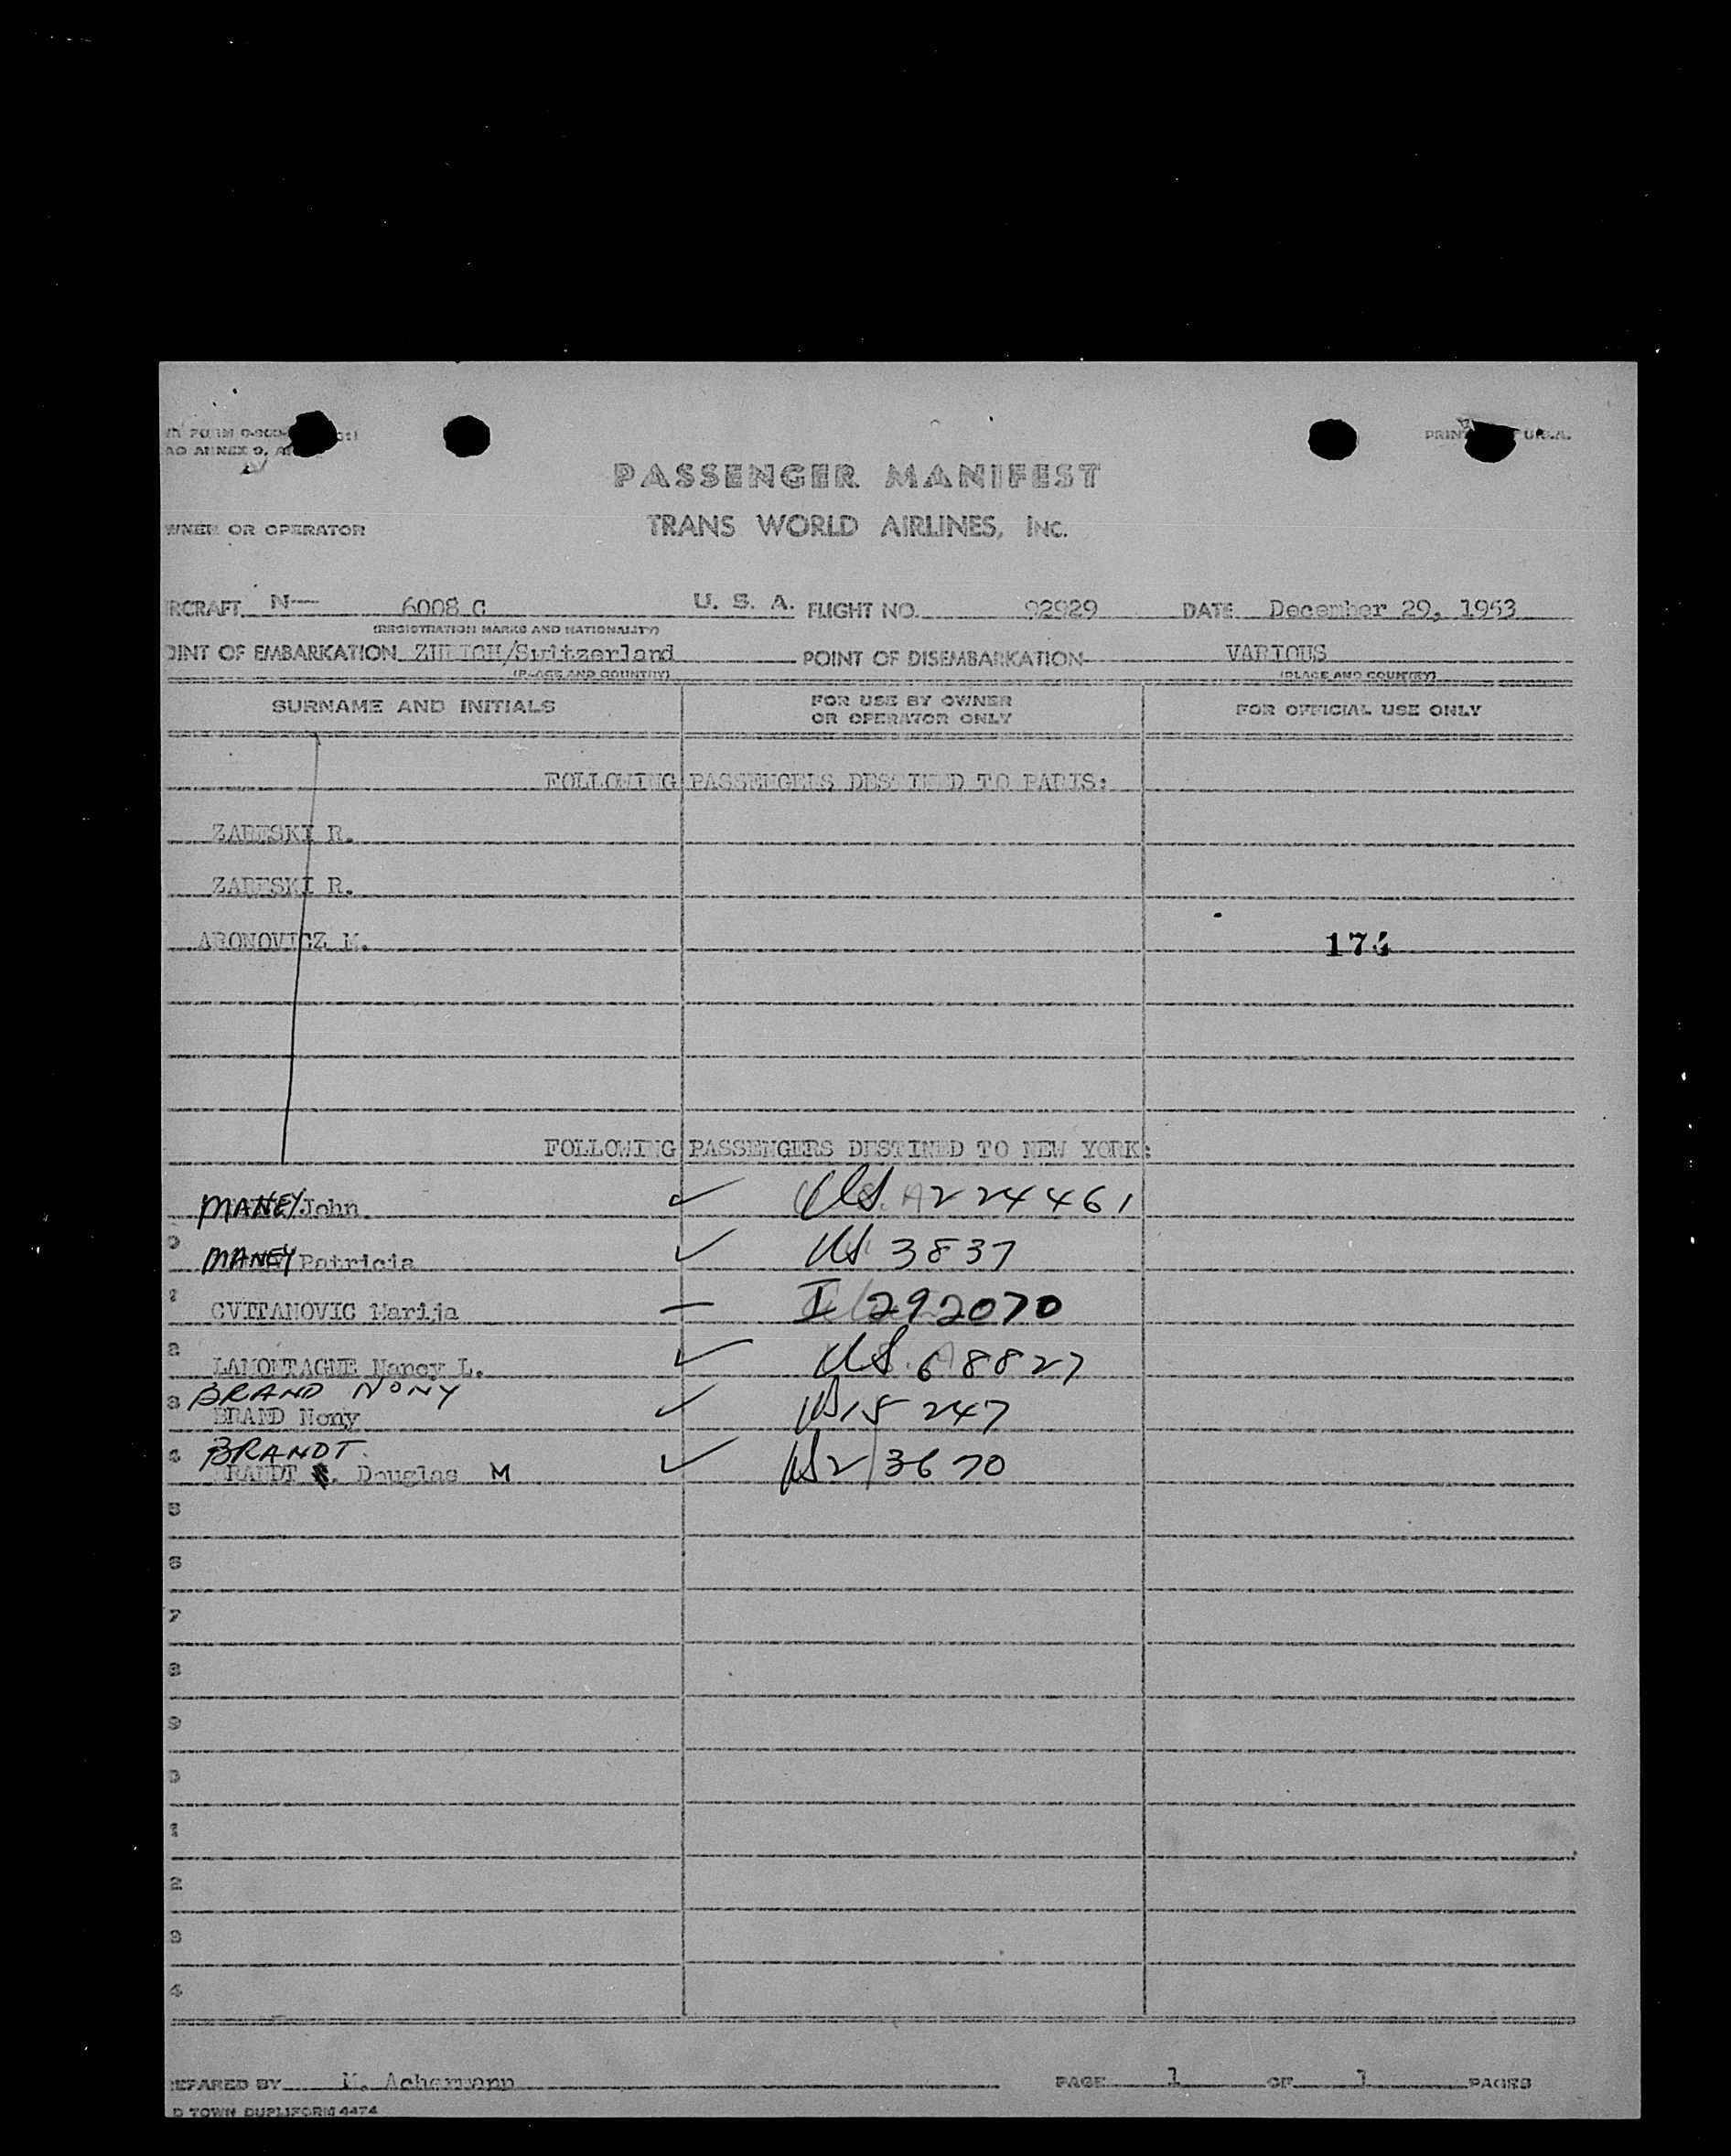 PASSENGER MANIFEST
WNER OR OPERATOR
TRANS WORLD AIRLINES, INC.
RCRAFT N— 6008 C U. S. A. FLIGHT NO. 92929 DATE December 29, 1953
(REGISTRATION MARKS AND NATIONALITY)
OINT OF EMBARKATION ZURICH/Switzerland POINT OF DISEMBARKATION VARIOUS
(PLACE AND COUNTRY) (PLACE AND COUNTRY)
SURNAME AND INITIALS FOR USE BY OWNER OR OPERATOR ONLY FOR OFFICIAL USE ONLY
FOLLOWING PASSENGERS DESTINED TO PARIS:
ZARESKI R.
ZARESKI R.
ARONOVICZ M.
FOLLOWING PASSENGERS DESTINED TO NEW YORK:
MANEY John ✓ US 224461
MANEY Patricia ✓ US 3837
CVITANOVIC Marija — I 292070
2 LAMONTAGNE Nancy L. ✓ US 68827
BRAND NONY
3 BRAND Nony ✓ US 15247
BRANDT
4 BRANDT Douglas M ✓ US 2 3670
5
6
7
8
9
0
1
2
3
4
EPARED BY M. Achermann PAGE 1 OF 1 PAGES
D TOWN DUPLIFORM 4474